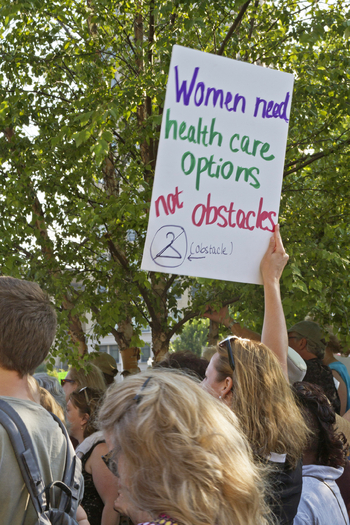 Women need
health care
options
not obstacles
(obstacle)